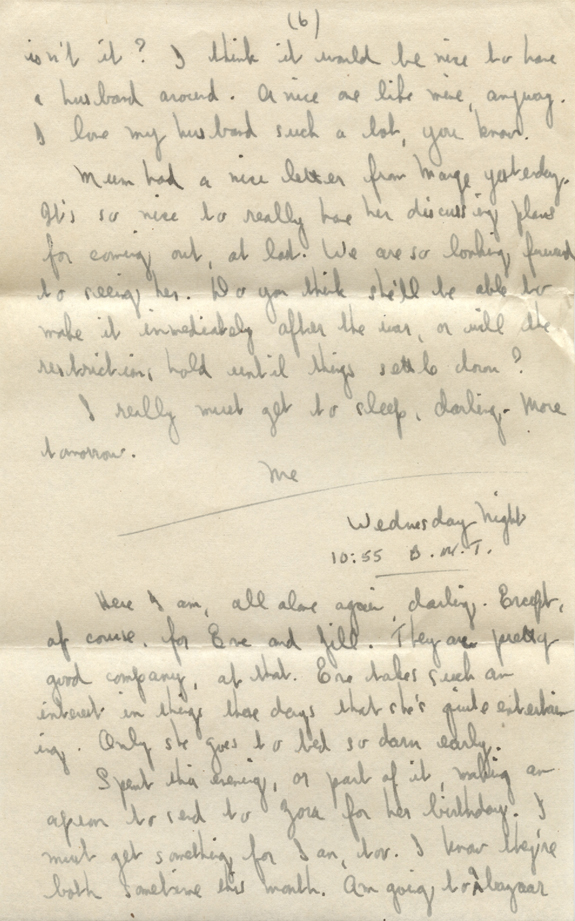 (6)
isn't it? I think it would be nice to have
a husband around. A nice one like mine, anyway.
I love my husband such a lot, you know.
Mum had a nice letter from Marge yesterday.
It's so nice to really have her discussing plans
for coming out, at last. We are so looking forward
to seeing her. Do you think she'll be able to
make it immediately after the war, or will the
restrictions hold until things settle down?
I really must get to sleep, darling. More
tomorrow.
Me
Wednesday Night
10:55 B.W.T.
Here I am, all alone again, darling. Except,
of course, for Eve and Jill. They are pretty
good company, at that. Eve takes such an
interest in things these days that she's quite entertain
ing. Only she goes to bed so darn early.
Spent this evening, or part of it, making an
apron to send to Zora for her birthday. I
must get something for Ian, too. I know they're
both sometime this month. Am going to bazaar